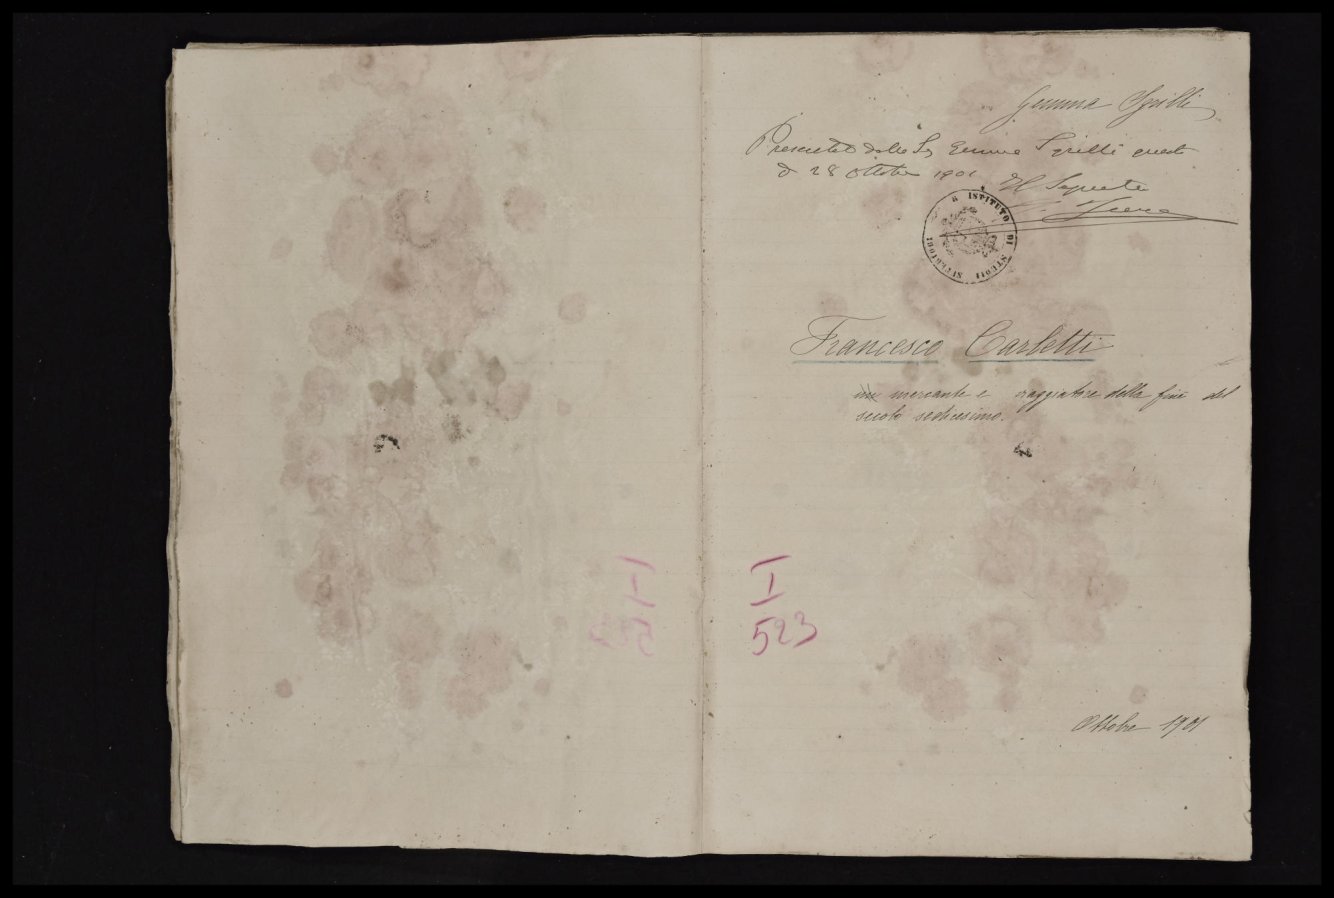 Gemma Sgrilli
Presentata dalla Sig Gemma Sgrilli questo
dì 28 Ottobre 1901 Il Segretario
R ISTITUTO DI STUDII SUPERIORI
Francesco Carletti
mercante e viaggiatore della fine del
secolo sedicesimo.
I
523
Ottobre 1901